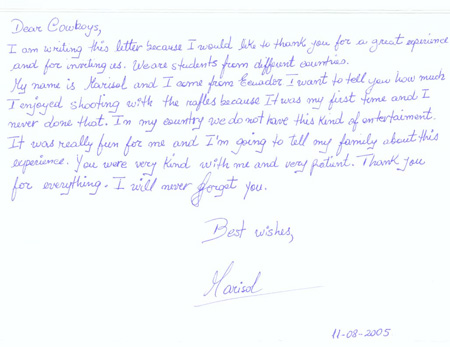 Dear Cowboys,
I am writing this letter because I would like to thank you for a great experience
and for inviting us. We are students from different countries.
My name is Marisol and I come from Ecuador I want to tell you how much
I enjoyed shooting with the rafles because It was my first time and I
never done that. In my country we do not have this kind of entertaiment.
It was really fun for me and I'm going to tell my family about this
experience. You were very kind with me and very patient. Thank you
for everything. I will never forget you.
Best wishes,
Marisol
11-08-2005